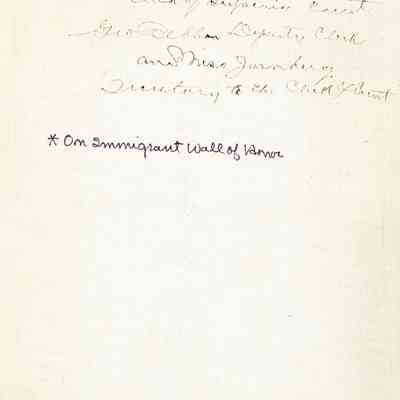 of Superior Court
Geo Deputy Clerk
and Miss
to the Clerk of Court
* On Immigrant Wall of Honor